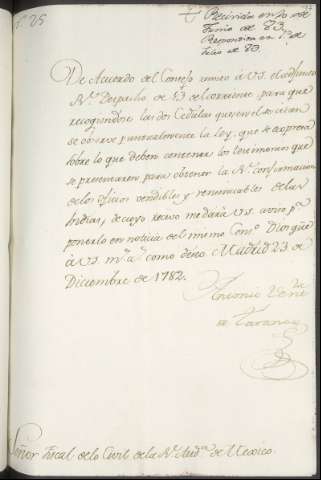 Recivida en 10 de
Junio de 83.
Respondida en 1.º de
Julio de 83.
De Acuerdo del Consejo remito à V.S. el adjunto
R.l Despacho de 13 del corriente, para que
recogiendose las dos Cedulas que en el se citan
se observe puntualmente la ley, que se expresa
sobre lo que deben contener los testimonios que
se presentaren para obtener la R.l confirmacion
de los oficios vendibles y renunciables de las
Indias, de cuyo recivo me dará V.S. aviso p.a
ponerlo en noticia del mismo Cons.o Dios gue
à V.S. m.s a.s como deseo. Madrid 23 de
Diciembre de 1782.
Antonio Vent.ra
de Taranco
Señor Fiscal de lo Civil de la R.l Aud.a de Mexico.